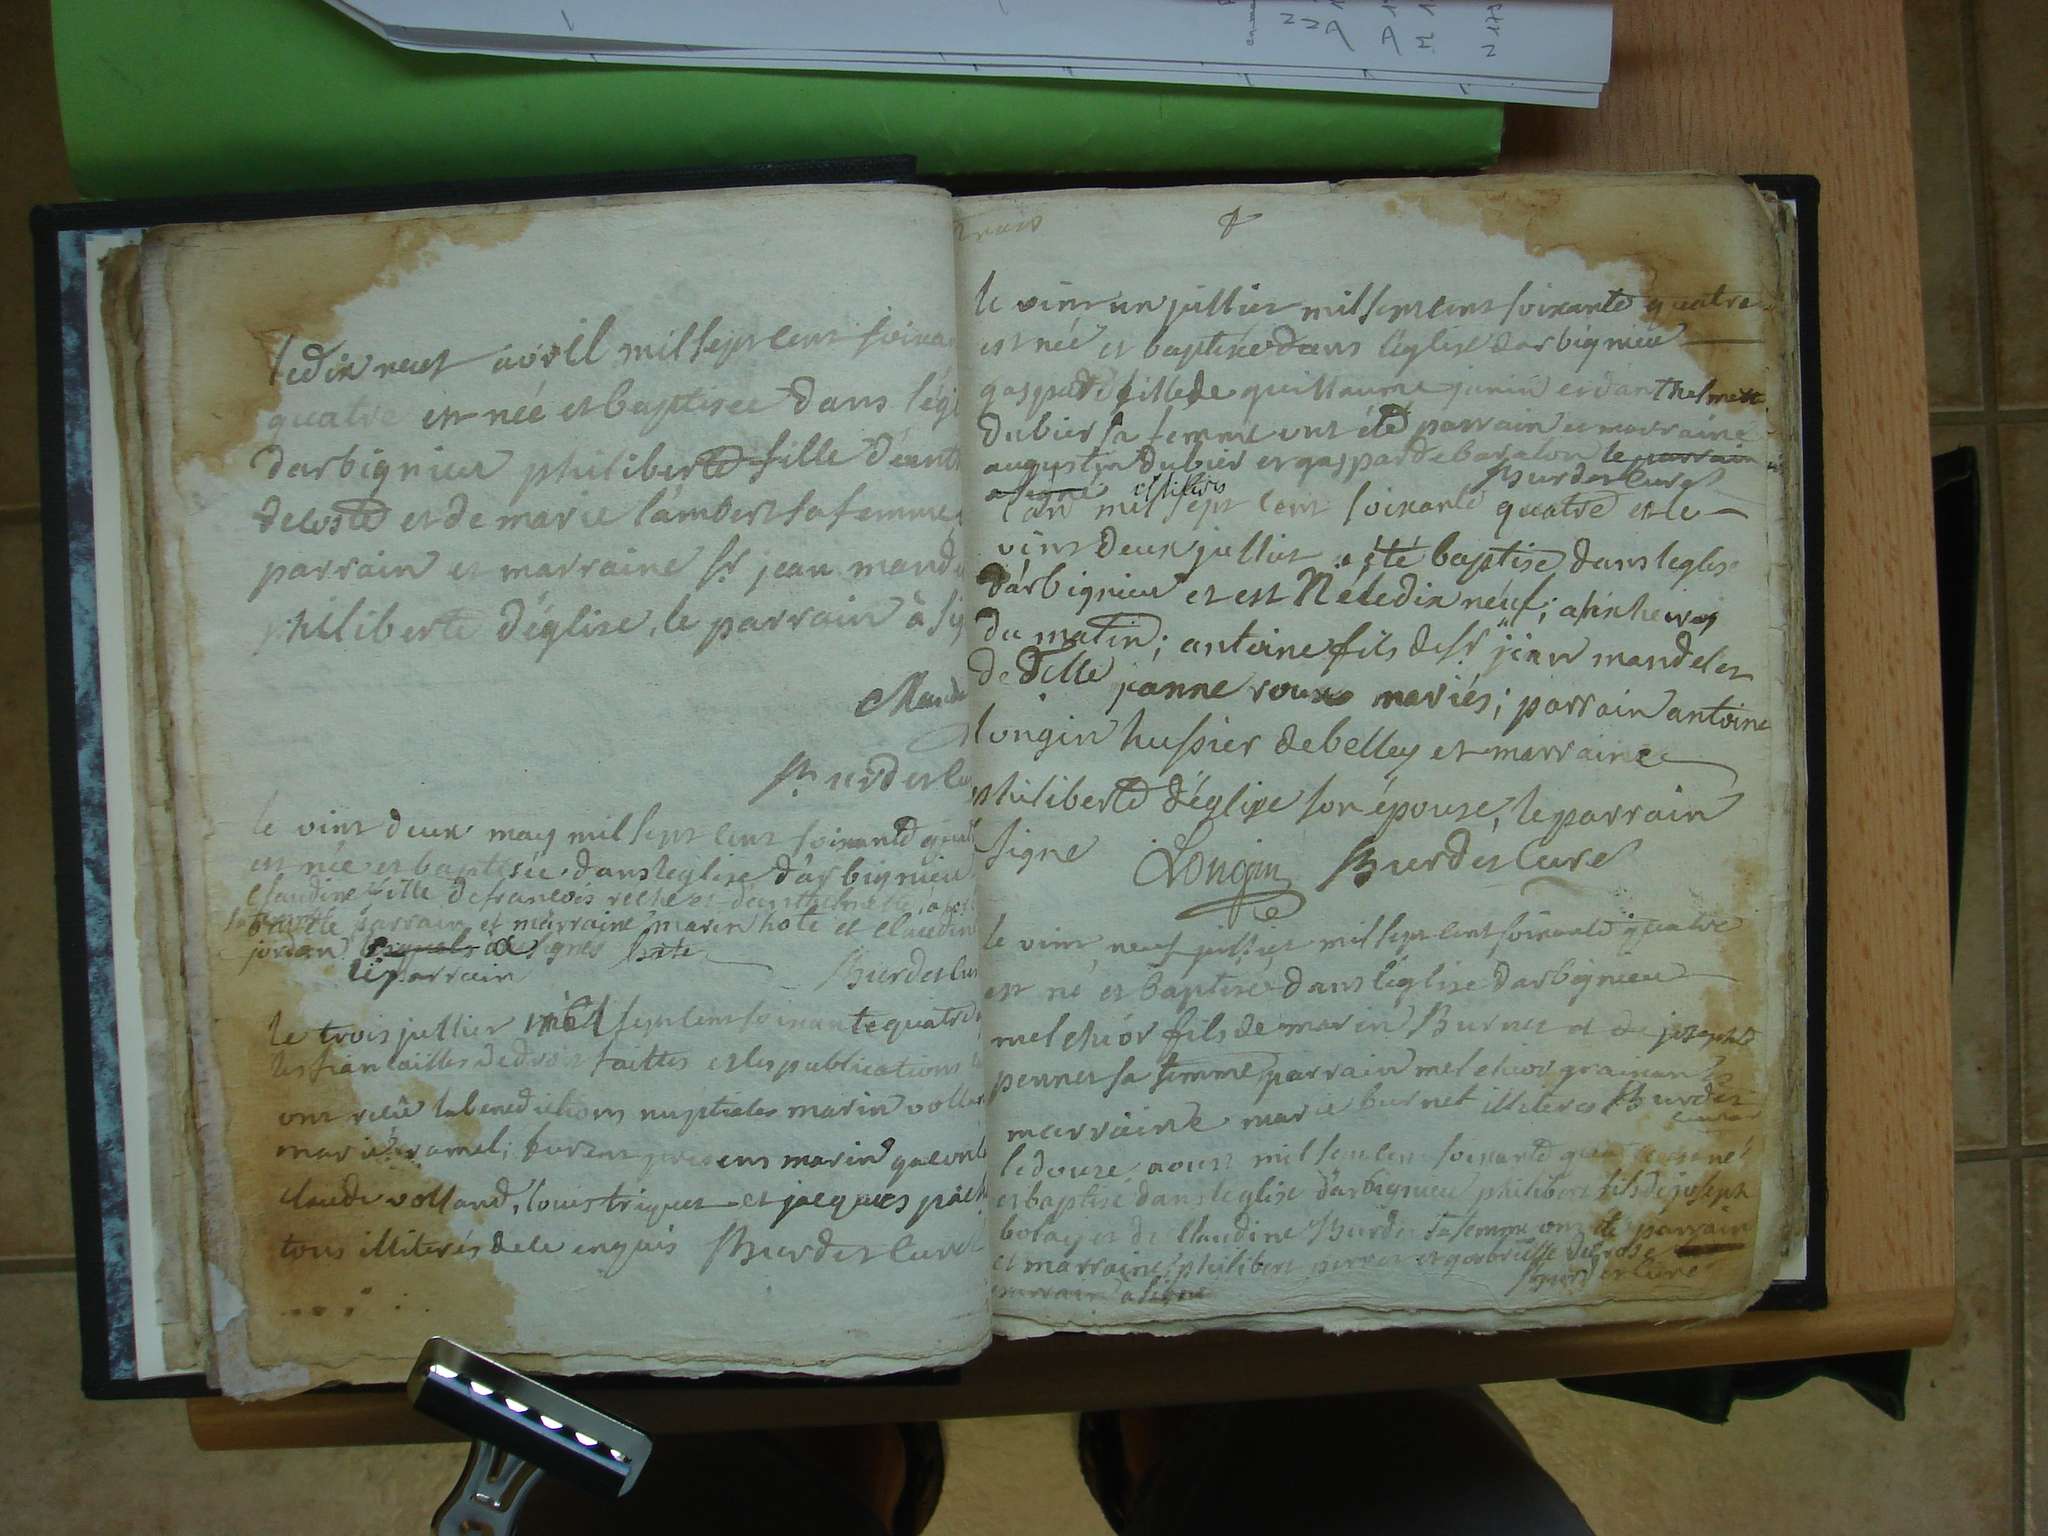 le dix neuf avril mil sept cent soixan
quatre est née et baptisee dans l'égl
darbignieu philiberte fille d'éant
deloste et de marie lambert sa femme
parrain et marraine Sr jean mande
philiberte d'église, le parrain à sig
Mande
Burdet cu
le vint deux may mil sept cent soixante quat
est née et baptisée dans leglise d'arbignieu
Claudine fille de francois
parrain et marraine marin hote et claudine
jordan signés hote
le parrain
Burdet cur
le trois juillier mil sept cent soixante quatre
les fiancailles de droit faittes et les publications
ont recû la benediction nuptiale marin vollan
marie ramel; furent presens marin
claude volland, louis triquet et jacques
tous illiterés de ce enquis Burdet curé
le vint un juillier mil sept cent soixante quatre
est née et baptisée dans l'église darbignieu
gasparde fille de guillaume janin et danthelmette
dubier sa femme ont été parrain et marraine
augustin dubier et gasparde baraton le parrain
a signé illiterés Burdet curé
l'an mil sept cent soixante quatre et le
vint deux juillier a été baptise dans leglise
d'arbignieu et est Né le dix neuf; a six heures
du matin; antoine fils de Sr jean mandel et
de Delle janne roux mariés; parrain antoine
longin hussier de belley et marraine
philiberte d'église son épouse, le parrain
signe Longin Burdet Curé
le vint neuf juillier mil sept cent soixante quatre
est né et baptisé dans l'église darbignieu
melchior fils de marin Burnet et de josephte
pernet sa femme parrain melchior
marraine marie burnet illiteres Burdet
curé
le douze aoust mil sept cent soixante quatre est né
et baptisé dans leglise d'arbignieu philibert fils de joseph
bolay et de Claudine Burdet sa femme ont été parrain
et marraine philibert perret et gabrielle
Burdet curé
parrain a signé